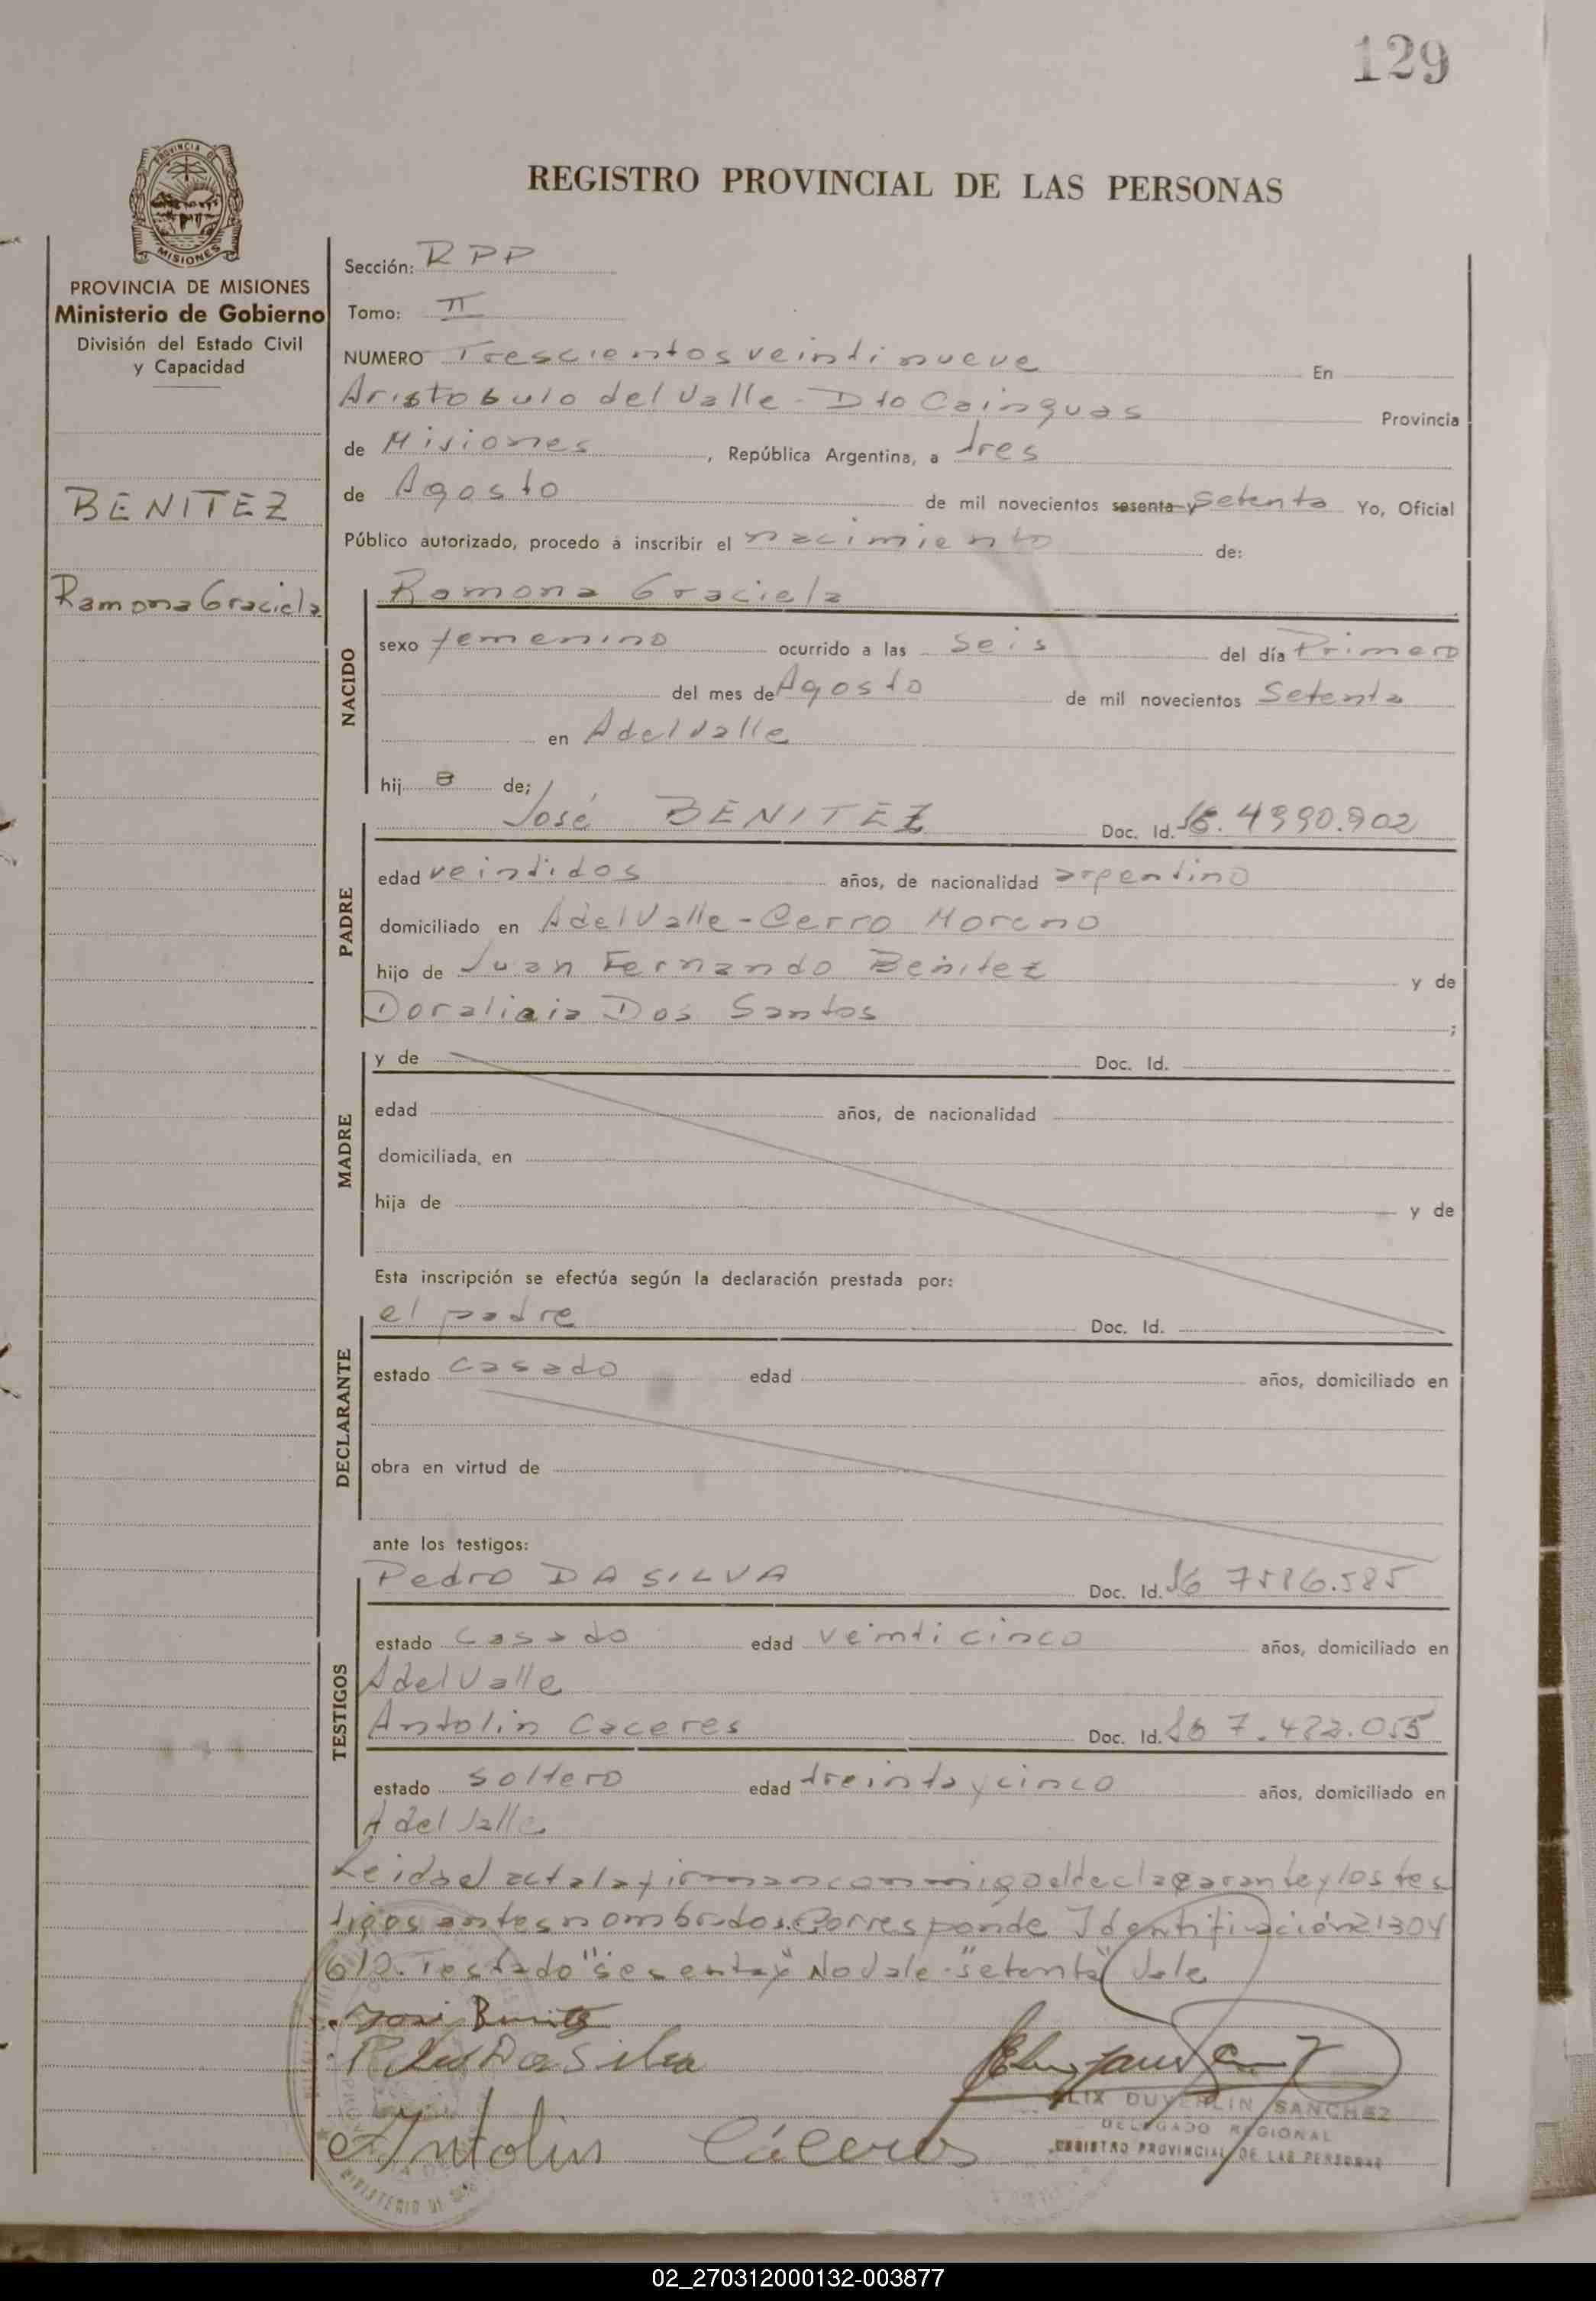 129
REGISTRO PROVINCIAL DE LAS PERSONAS
PROVINCIA DE MISIONES
Ministerio de Gobierno
División del Estado Civil
y Capacidad
BENITEZ
Ramona Graciela
Sección: RPP
Tomo: II
NUMERO Trescientos veintinueve En
Aristobulo del Valle - Dto Cainguas Provincia
de Misiones, República Argentina, a tres
de Agosto de mil novecientos sesenta y Setenta Yo, Oficial
Público autorizado, procedo a inscribir el nacimiento de:
NACIDO
Ramona Graciela
sexo femenino ocurrido a las seis del día Primero
del mes de Agosto de mil novecientos Setenta
en A del Valle
hij a de;
PADRE
José BENITEZ Doc. Id. 4990.902
edad veintidos años, de nacionalidad argentino
domiciliado en A del Valle - Cerro Moreno
hijo de Juan Fernando Benitez y de
Doraliaia Dos Santos ;
MADRE
y de Doc. Id.
edad años, de nacionalidad
domiciliada, en
hija de y de
Esta inscripción se efectúa según la declaración prestada por:
DECLARANTE
el padre Doc. Id.
estado casado edad años, domiciliado en
obra en virtud de
ante los testigos:
TESTIGOS
Pedro DA SILVA Doc. Id.
estado casado edad veinticinco años, domiciliado en
A del Valle
Antolin Caceres Doc. Id. 7.422.055
estado soltero edad treinta y cinco años, domiciliado en
A del Valle
Leida el acta la firman conmigo el declararante y los tes
tigos antes nombrados. Corresponde Identificación 21304
612. Testado "sesenta y" No vale. "setenta" Vale
José Benitez
Da Silva
Antolin Cáceres
FELIX DUVERLIN SANCHEZ
DELEGADO REGIONAL
REGISTRO PROVINCIAL DE LAS PERSONAS
02_270312000132-003877